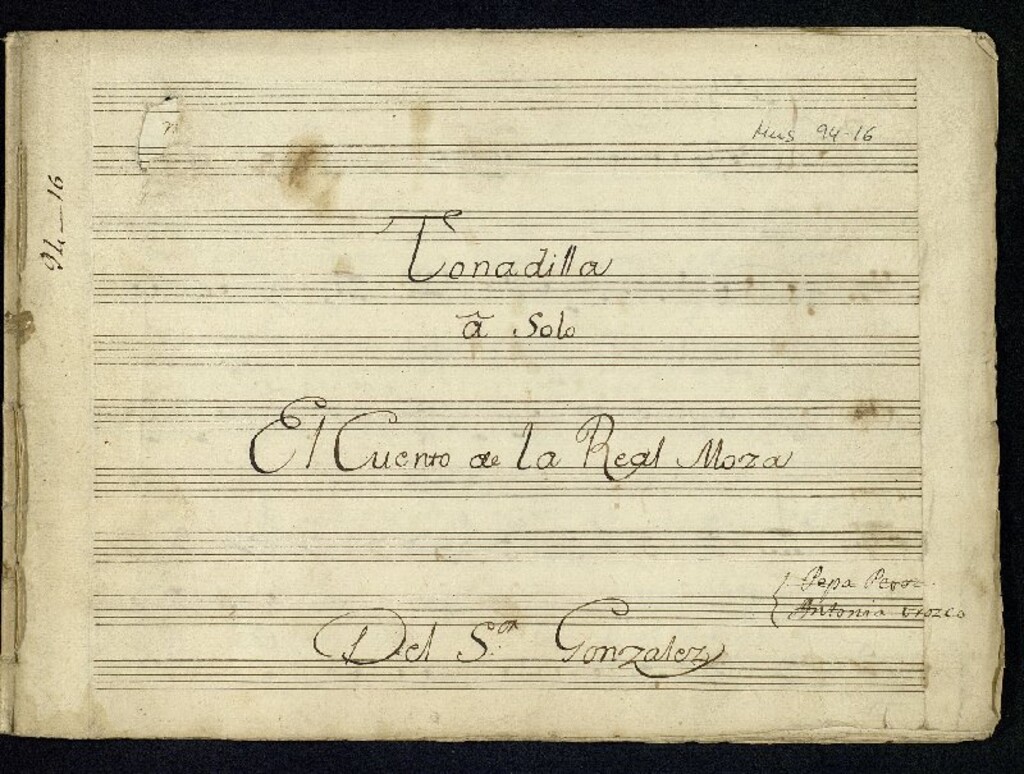 Mus 94-16
94-16
Tonadilla
â Solo
El Cuento de la Real Moza
Pepa
Antonia Orozco
Del S.or Gonzalez